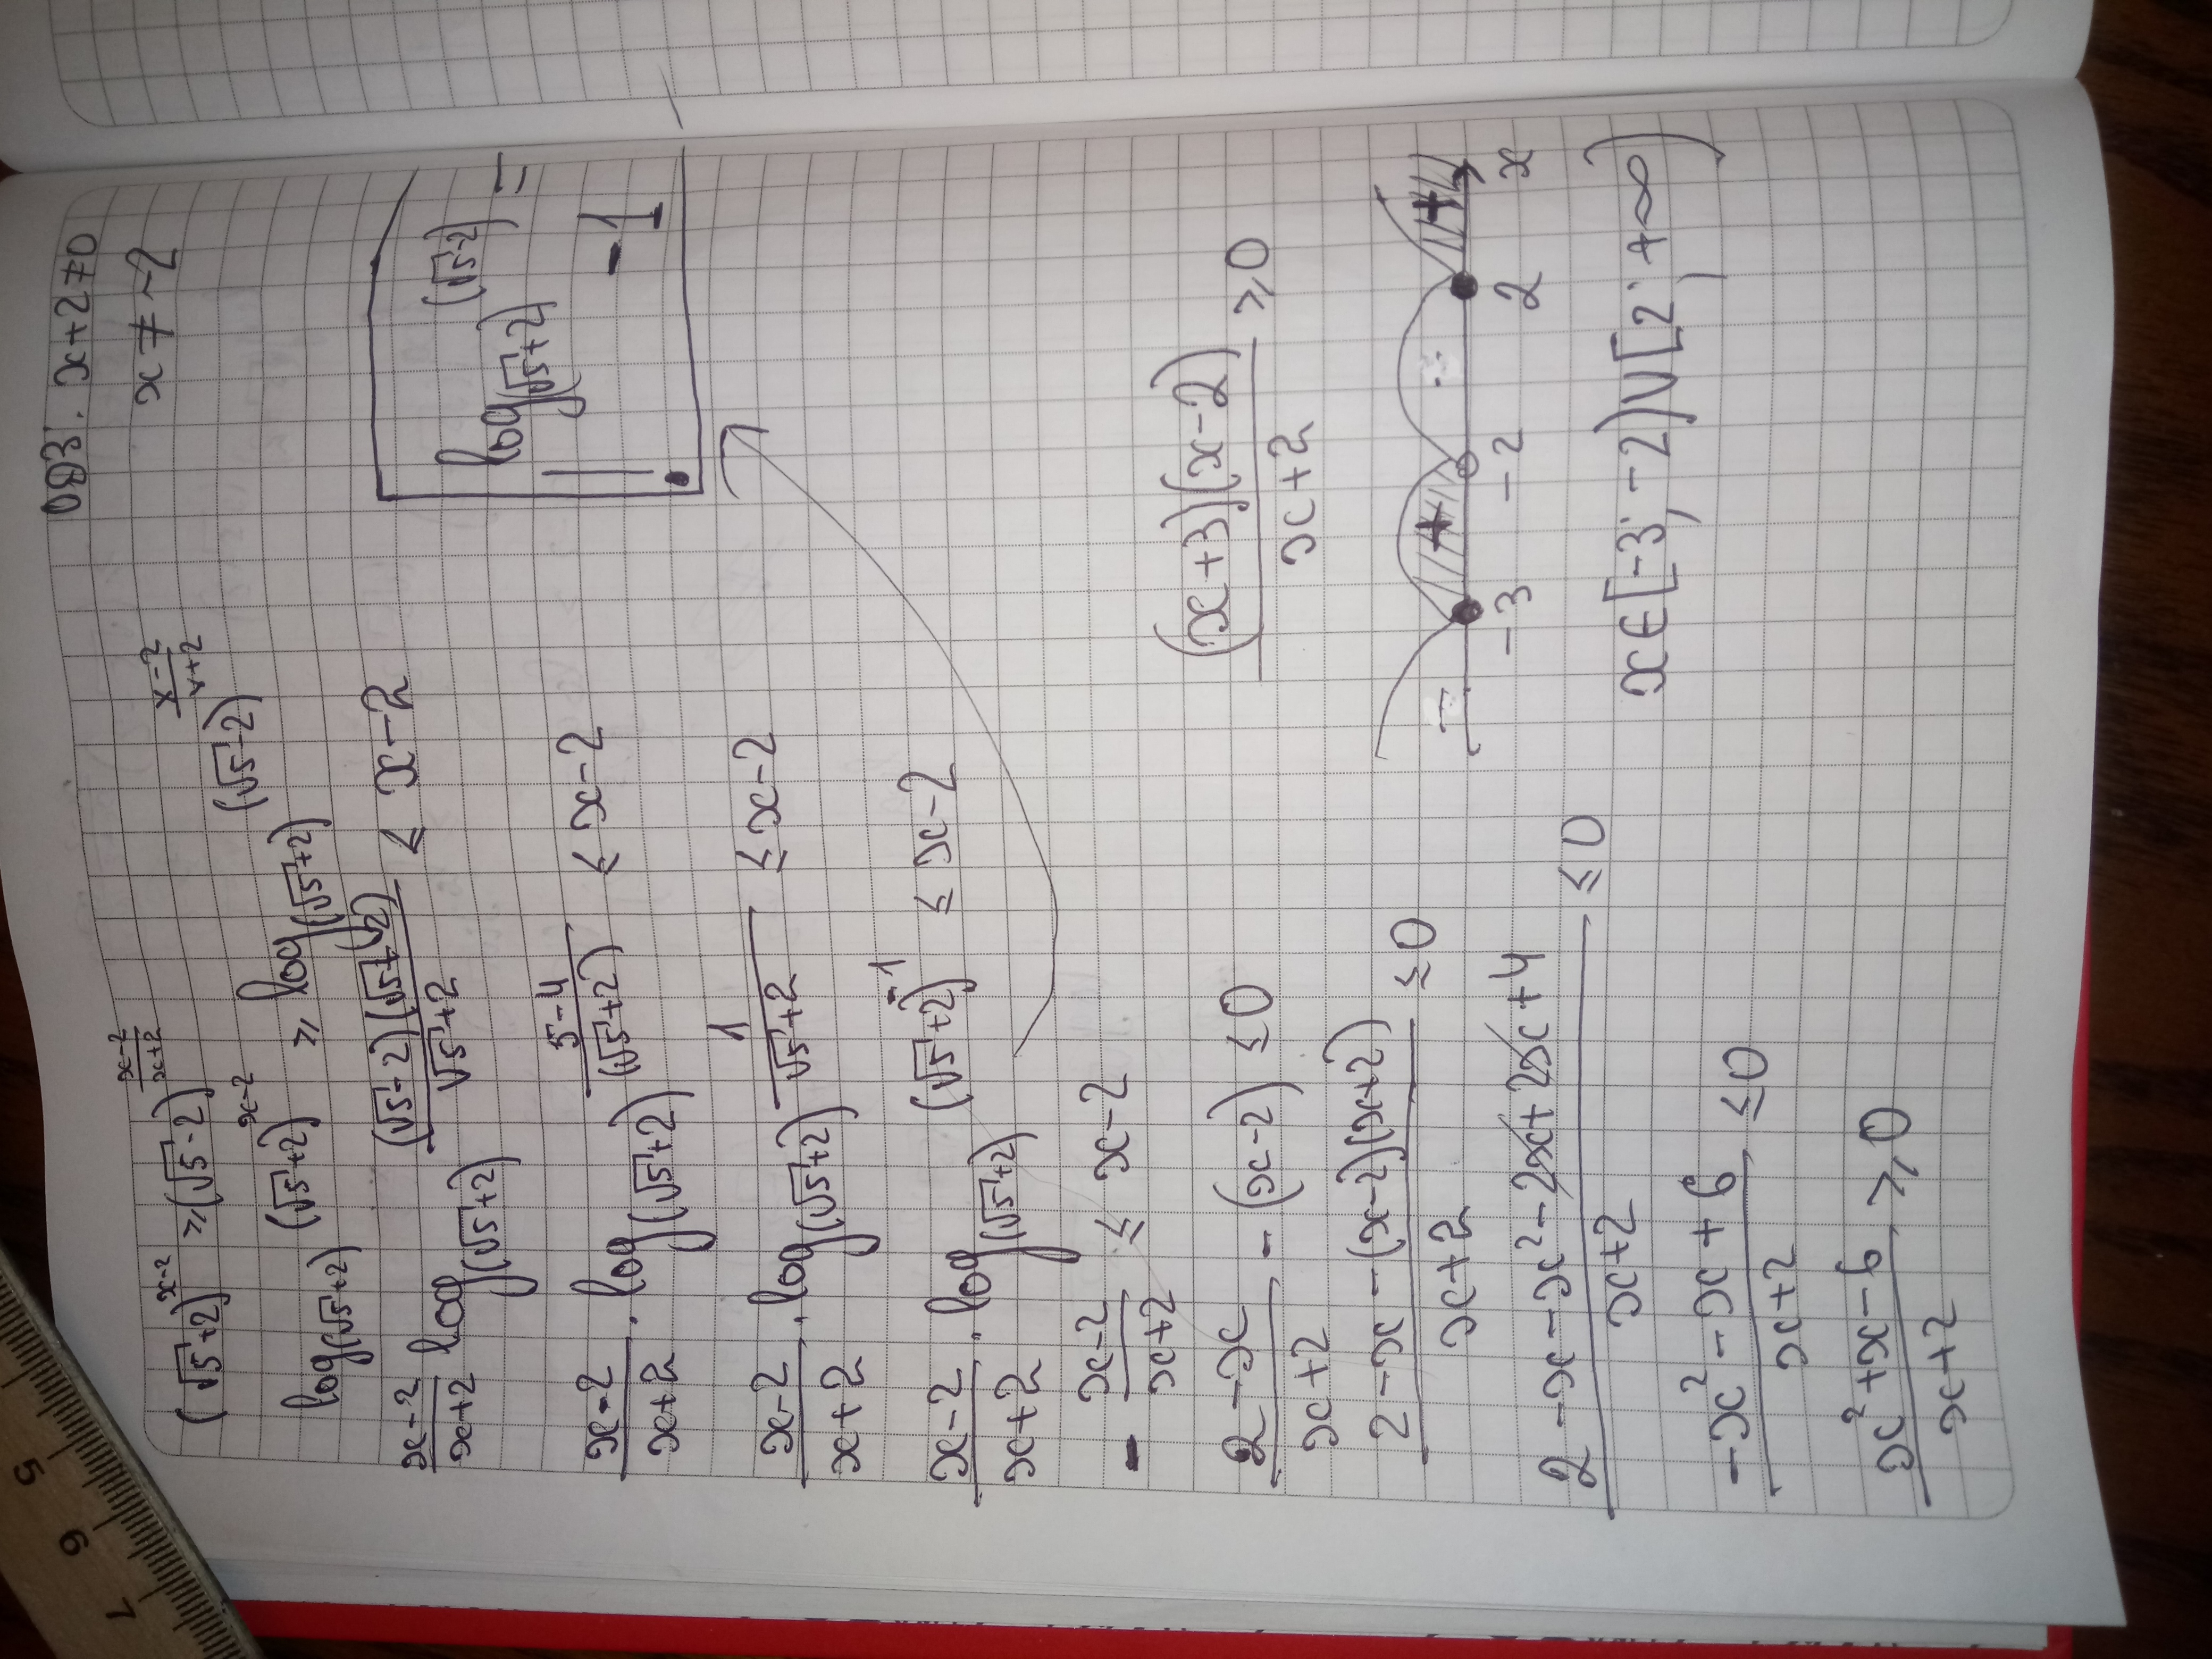 ОДЗ: x+2≠0
x ≠ -2
(√5+2)^(x-2) ≥ (√5-2)^((x-2)/(x+2))
log_(√5+2) (√5+2)^(x-2) ≥ log_(√5+2) (√5-2)^((x-2)/(x+2))
(x-2)/(x+2) log_(√5+2) ((√5-2)(√5+2))/(√5+2) ≤ x-2
log_(√5+2) (√5-2) =
= -1
(x-2)/(x+2) · log_(√5+2) (5-4)/(√5+2) ≤ x-2
(x-2)/(x+2) · log_(√5+2) 1/(√5+2) ≤ x-2
(x-2)/(x+2) · log_(√5+2) (√5+2)^(-1) ≤ x-2
- (x-2)/(x+2) ≤ x-2
(2-x)/(x+2) - (x-2) ≤ 0
(2-x-(x-2)(x+2))/(x+2) ≤ 0
(2-x-x²-2x+2x+4)/(x+2) ≤ 0
(-x²-x+6)/(x+2) ≤ 0
(x²+x-6)/(x+2) ≥ 0
((x+3)(x-2))/(x+2) ≥ 0
- + - +
-3 -2 2 x
x∈[-3; -2)∪[2; +∞)